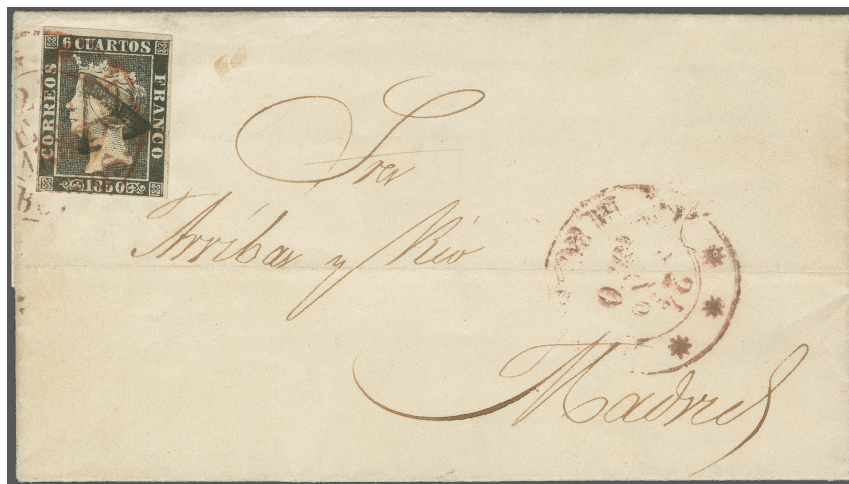 6 CUARTOS
CORREOS
FRANCO
1850
Sres
Arribas y Rio
Madrid